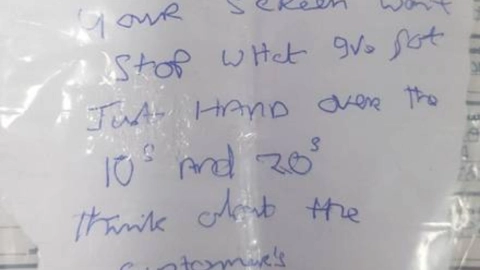 Your Screen won't
Stop What gve got
Just HAND over the
10s And 20s
think about the
customer's